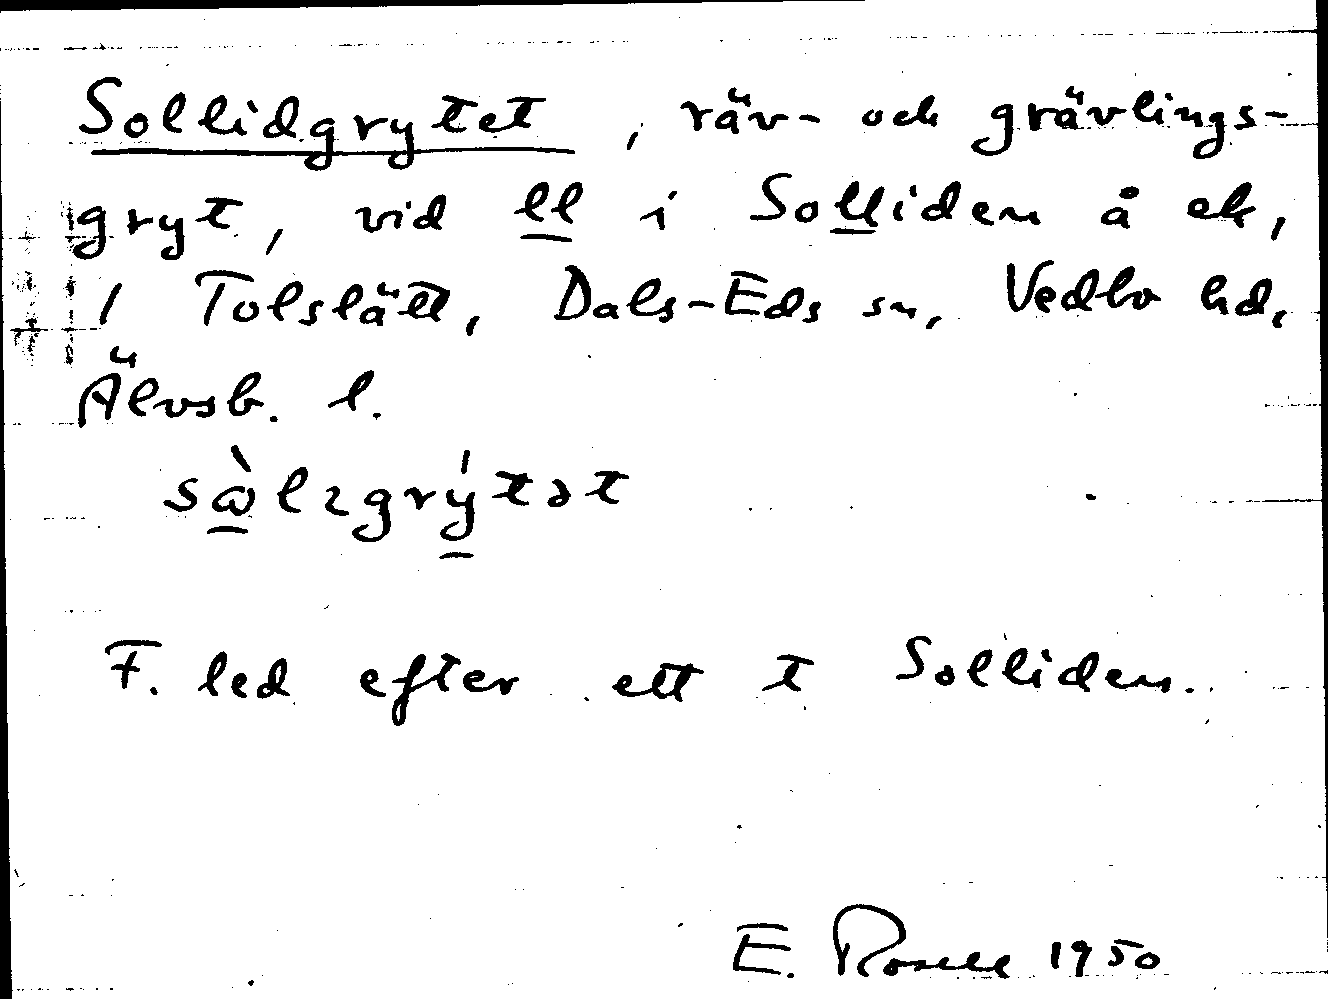 Sollidgrytet, räv- och grävlings-
gryt, vid ll i Solliden å ek,
1 Tolslätt, Dals-Eds sn, Vedbo hd,
Älvsb. l.
sὼlɩgrýtət
F. led efter ett t Solliden.
E. Rosell 1950